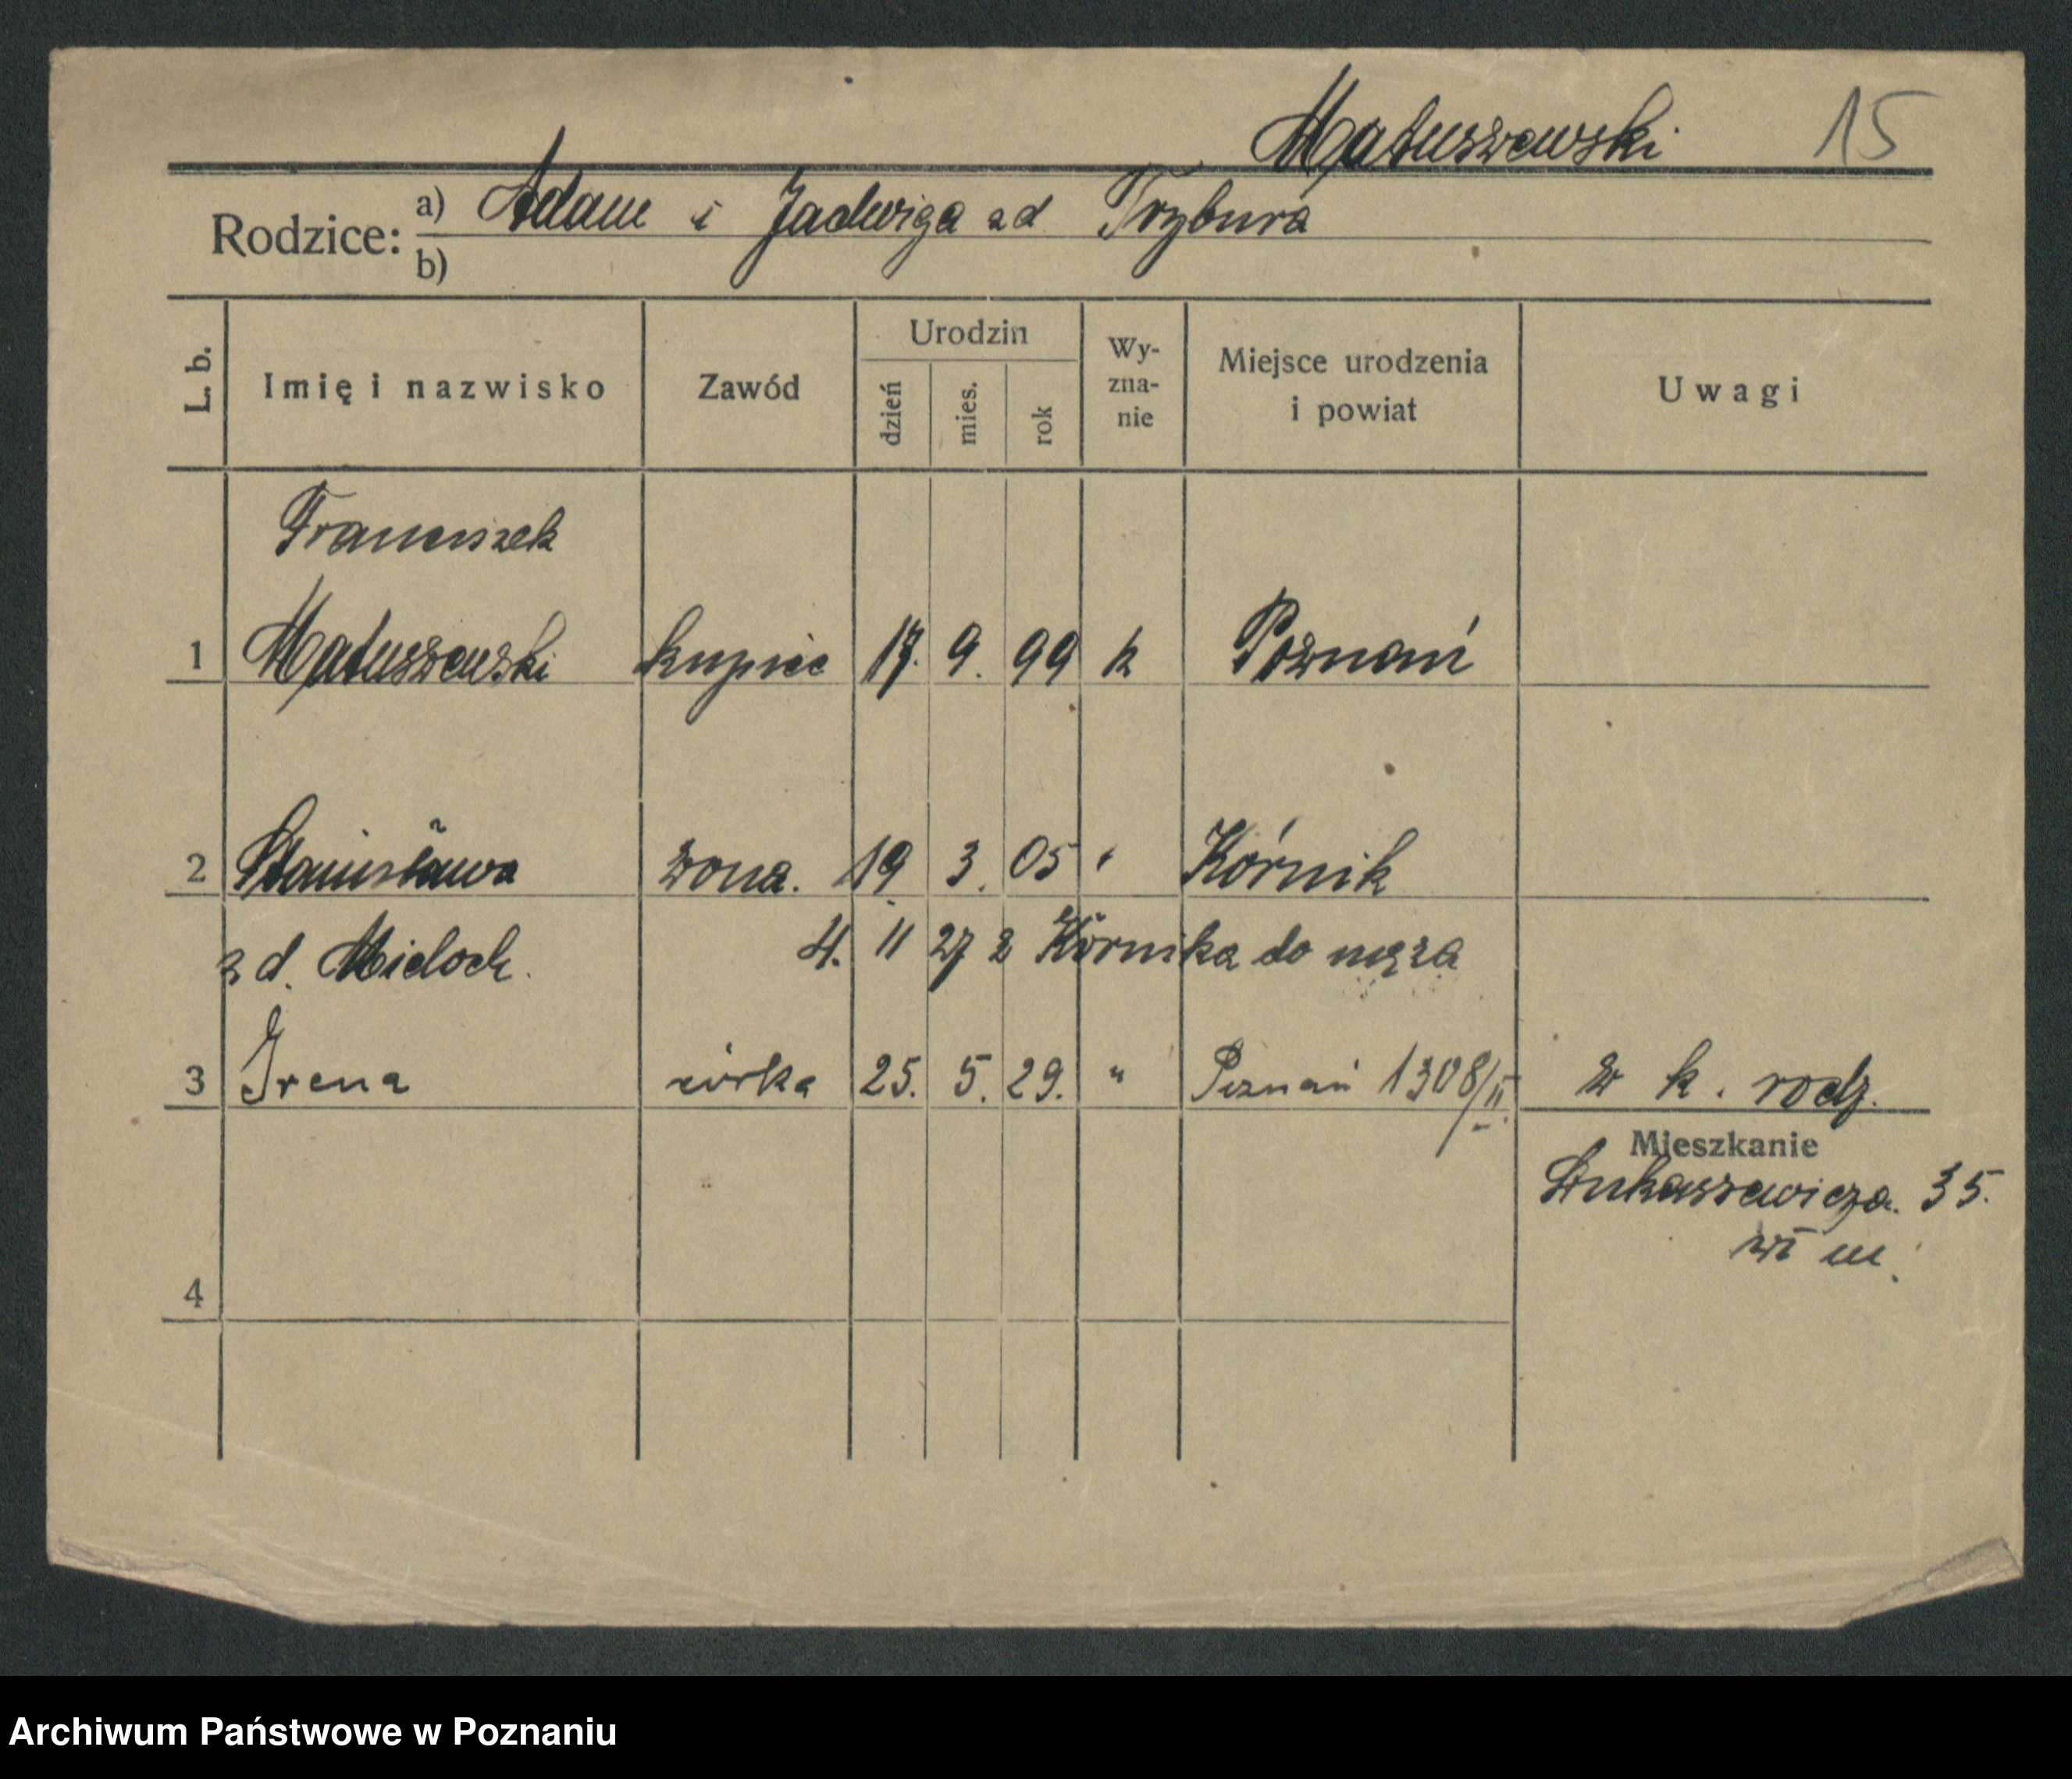 Matuszewski 15
Rodzice: a) Adam i Jadwiga zd Trybura
b)
L. b. Imię i nazwisko Zawód Urodzin dzień mies. rok Wy-zna-nie Miejsce urodzenia i powiat Uwagi
Franciszek
1 Matuszewski kupiec 17. 9. 99 k Poznań
2 Stanisława żona. 19. 3. 05 " Kórnik
zd. Mieloch. 4. 11 27 z Kórnika do męża
3 Irena córka 25. 5. 29. " Poznań 1308/II. w k. rodz.
Mieszkanie
Łukaszewicza. 35.
wł m.
4
Archiwum Państwowe w Poznaniu